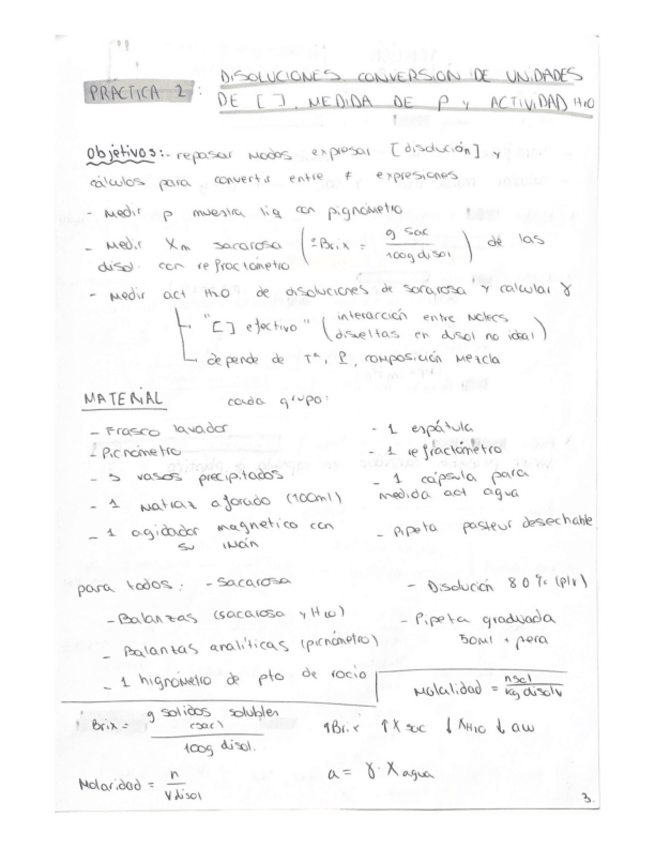 PRÁCTICA 2 : DISOLUCIONES. CONVERSIÓN DE UNIDADES
DE [ ], MEDIDA DE ρ Y ACTIVIDAD H2O
Objetivos:- repasar modos expresar [disolución] y
cálculos para convertir entre ≠ expresiones
- Medir ρ muestra liq con pignómetro
- Medir Xm sacarosa (ºBrix = g sac / 100g disol) de las
disol. con refractómetro
- Medir act H2O de disoluciones de sacarosa y calcular γ
"[ ] efectivo" (interacción entre molecs
disueltas en disol no ideal)
depende de Tª, P, composición mezcla
MATERIAL cada grupo:
- Frasco lavador
- Picnómetro
- 3 vasos precipitados
- 1 matraz aforado (100ml)
- 1 agidador magnetico con
su imán
- 1 espátula
- 1 refractómetro
- 1 cápsula para
medida act agua
- Pipeta pasteur desechable
para todos: - Sacarosa
- Balanzas (sacarosa y H2O)
- Balantas analíticas (picnómetro)
- 1 higrómetro de pto de rocío
- Disolución 80% (p/v)
- Pipeta graduada
50ml + pera
Molalidad = nsol / kg disolv
Brix = g solidos solubles (sac) / 100g disol.
↑Brix ↑X sac ↓XH2O ↓aw
Molaridad = n / V disol
a = γ · X agua
3.